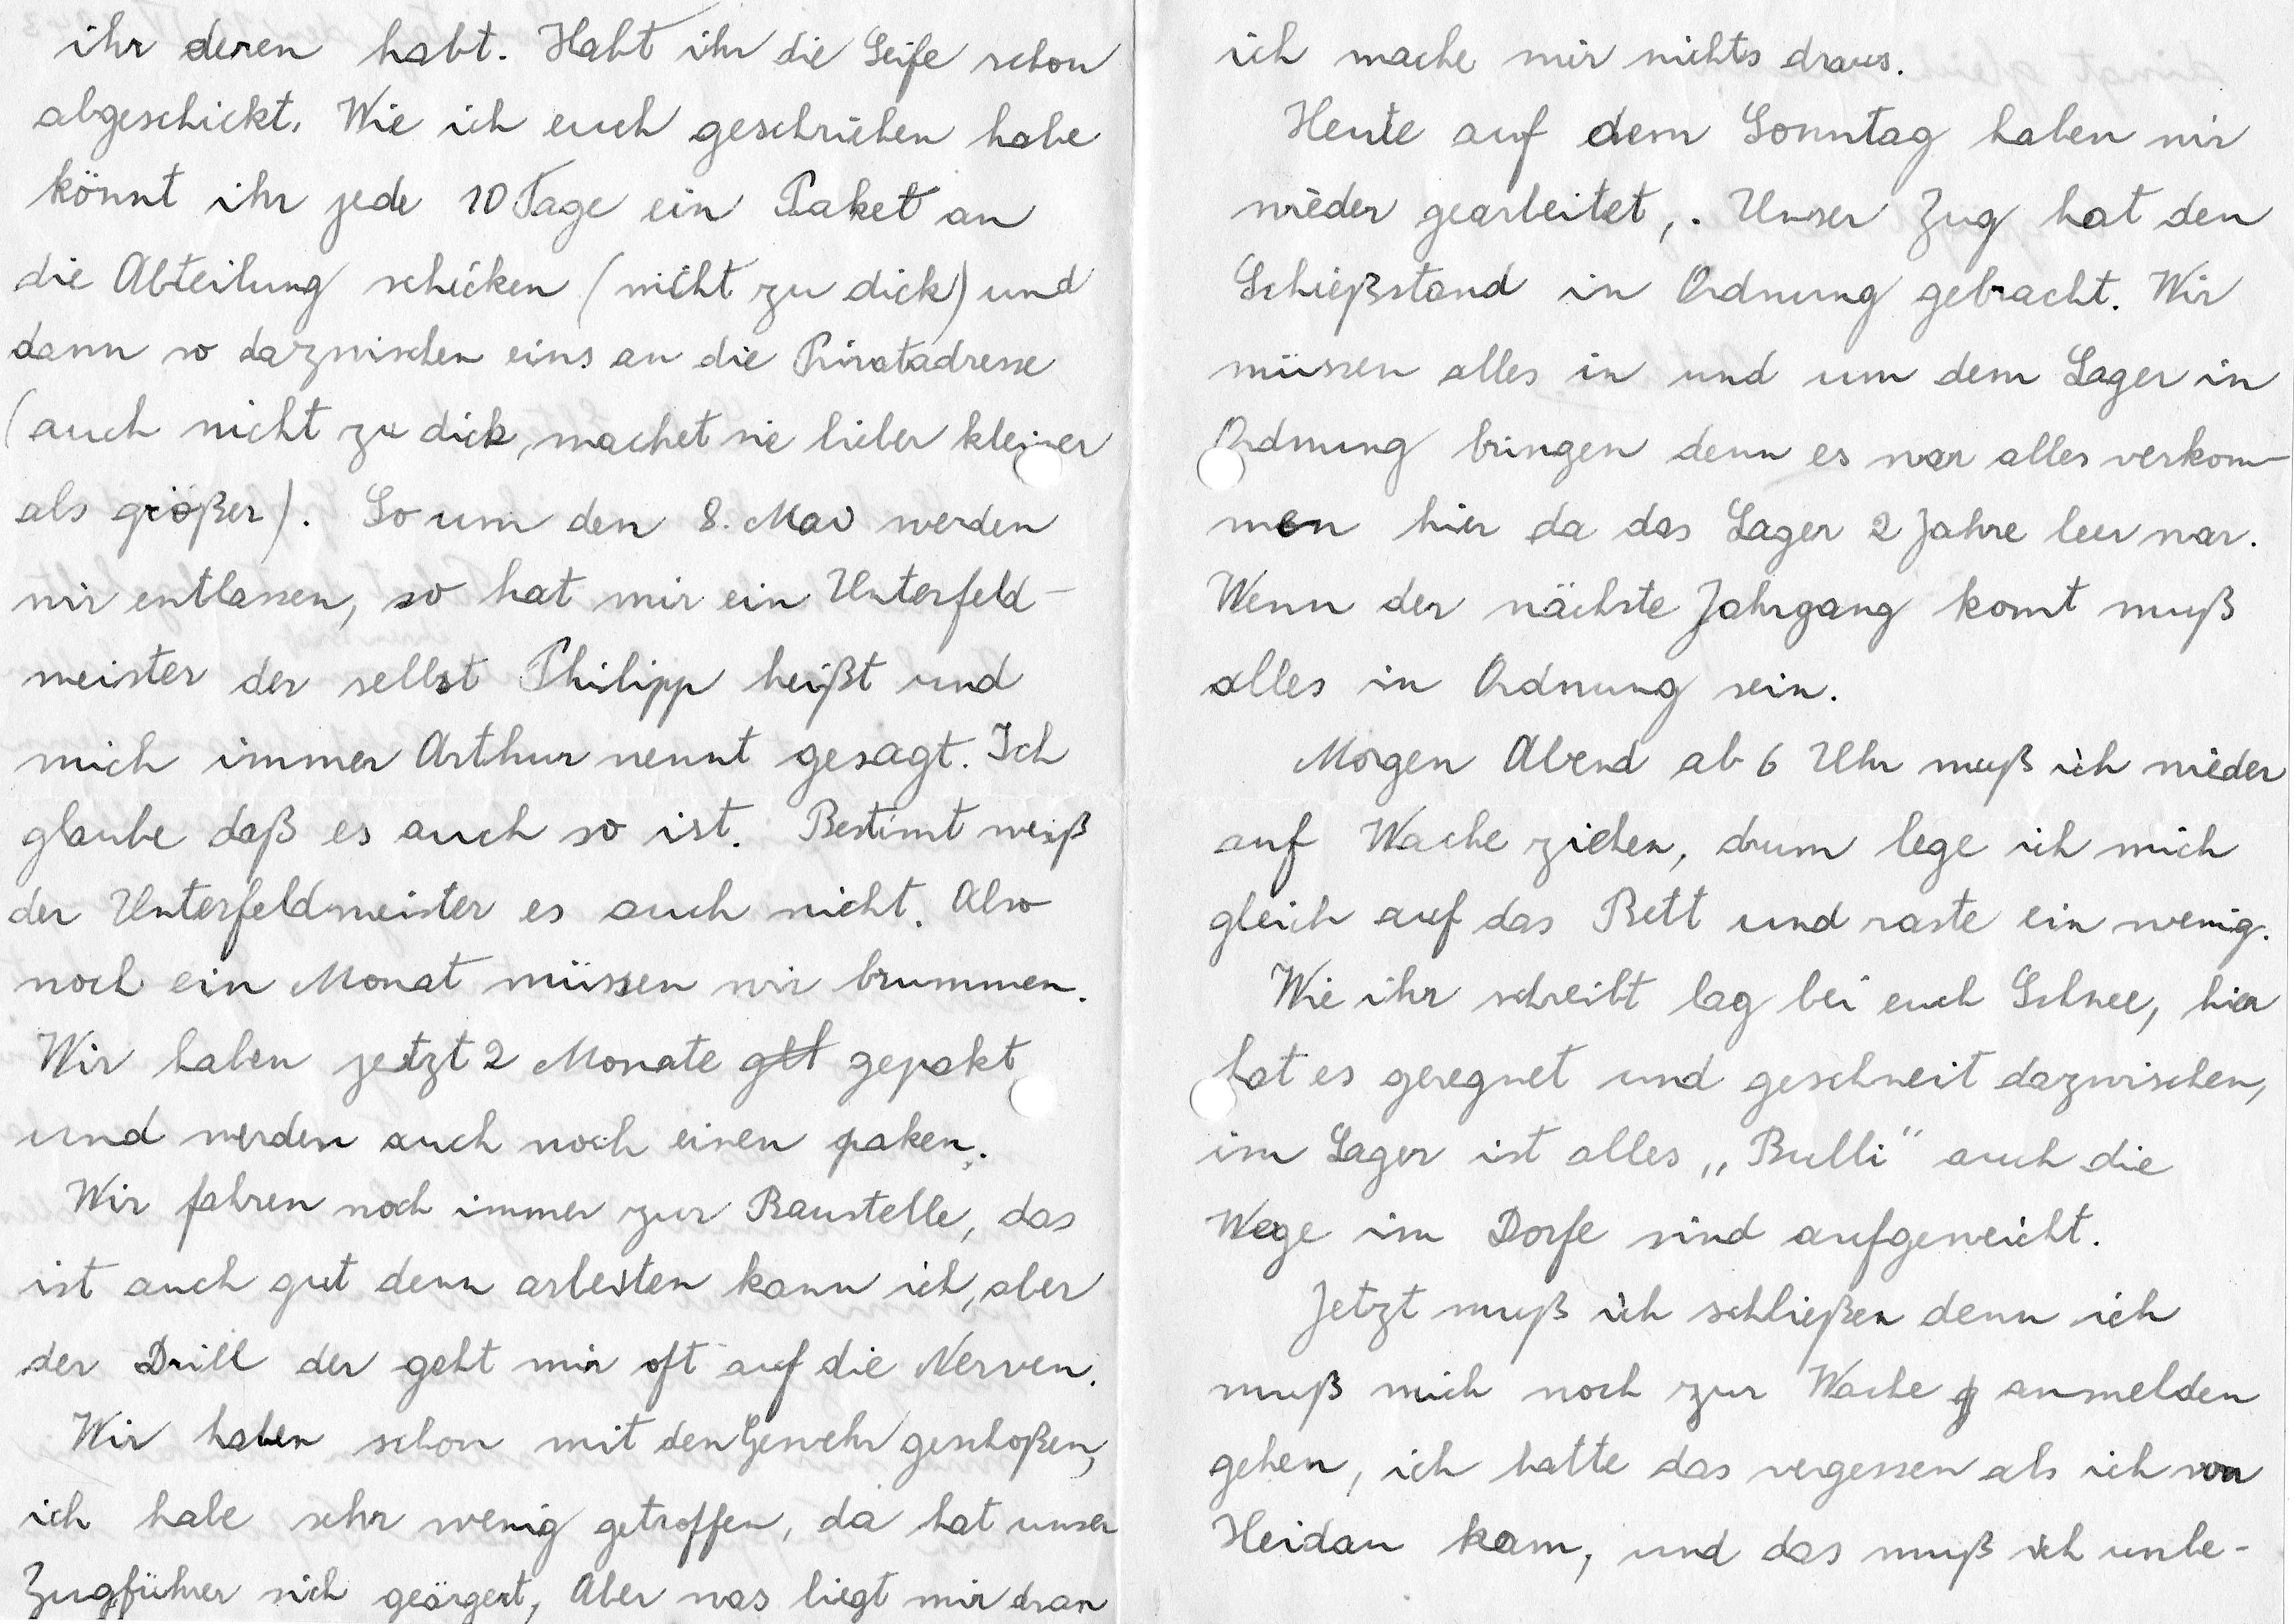 ihr deren habt. Habt ihr die Seife schon
abgeschickt. Wie ich euch geschrieben habe
könnt ihr jede 10 Tage ein Paket an
die Abteilung schicken (nicht zu dick) und
dann so dazwischen eins an die Privatadresse
(auch nicht zu dick, machet sie lieber kleiner
als größer). So um den 8. Mai werden
wir entlassen, so hat mir ein Unterfeld-
meister der selbst Philipp heißt und
mich immer Arthur nennt gesagt. Ich
glaube daß es auch so ist. Bestimt weiß
der Unterfeldmeister es auch nicht. Also
noch ein Monat müssen wir brummen.
Wir haben jetzt 2 Monate gepakt
und werden auch noch einen paken.
Wir fahren noch immer zur Baustelle, das
ist auch gut denn arbeiten kann ich, aber
der Drill der geht mir oft auf die Nerven.
Wir haben schon mit den Gewehr geschoßen,
ich habe sehr wenig getroffen, da hat unser
Zugführer sich geärgert, Aber was liegt mir dran
ich mache mir nichts draus.
Heute auf dem Sonntag haben wir
wieder gearbeitet,. Unser Zug hat den
Schießstand in Ordnung gebracht. Wir
müssen alles in und um dem Lager in
Ordnung bringen denn es war alles verkom-
men hier da das Lager 2 Jahre leer war.
Wenn der nächste Jahrgang komt muß
alles in Ordnung sein.
Morgen Abend ab 6 Uhr muß ich wieder
auf Wache ziehen, drum lege ich mich
gleich auf das Bett und raste ein wenig.
Wie ihr schreibt lag bei euch Schnee, hier
hat es geregnet und geschneit dazwischen,
im Lager ist alles „Bulli" auch die
Wege im Dorfe sind aufgeweicht.
Jetzt muß ich schließen denn ich
muß mich noch zur Wache anmelden
gehen, ich hatte das vergessen als ich von
Heidau kam, und das muß ich unbe-